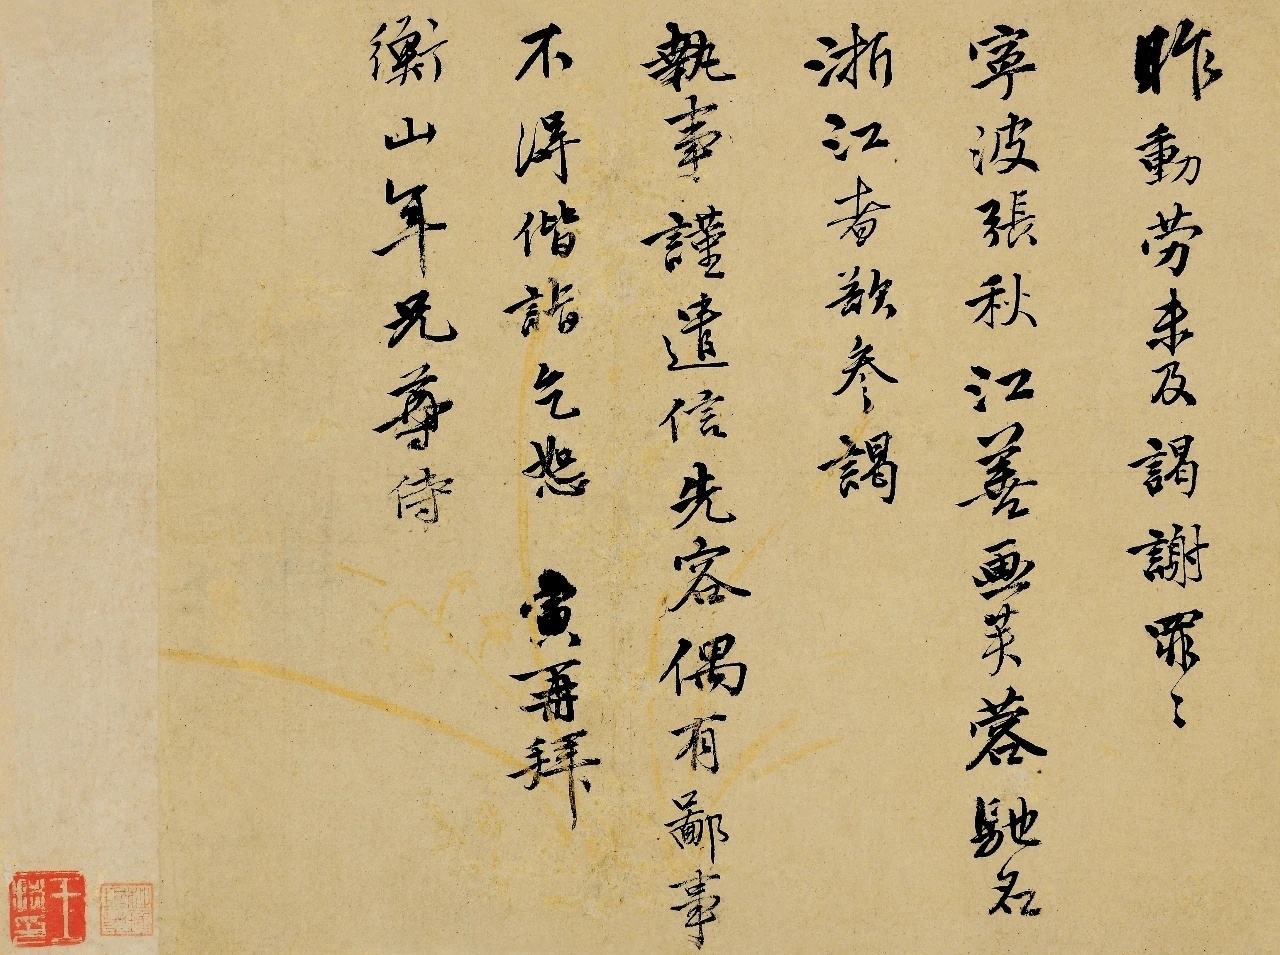 昨動劳未及謁謝罪〻
寧波張秋江善画芙蓉馳名
浙江者欲参謁
執事謹遣信先容偶有鄙事
不得偕詣乞恕 寅再拜
衡山年兄尊侍